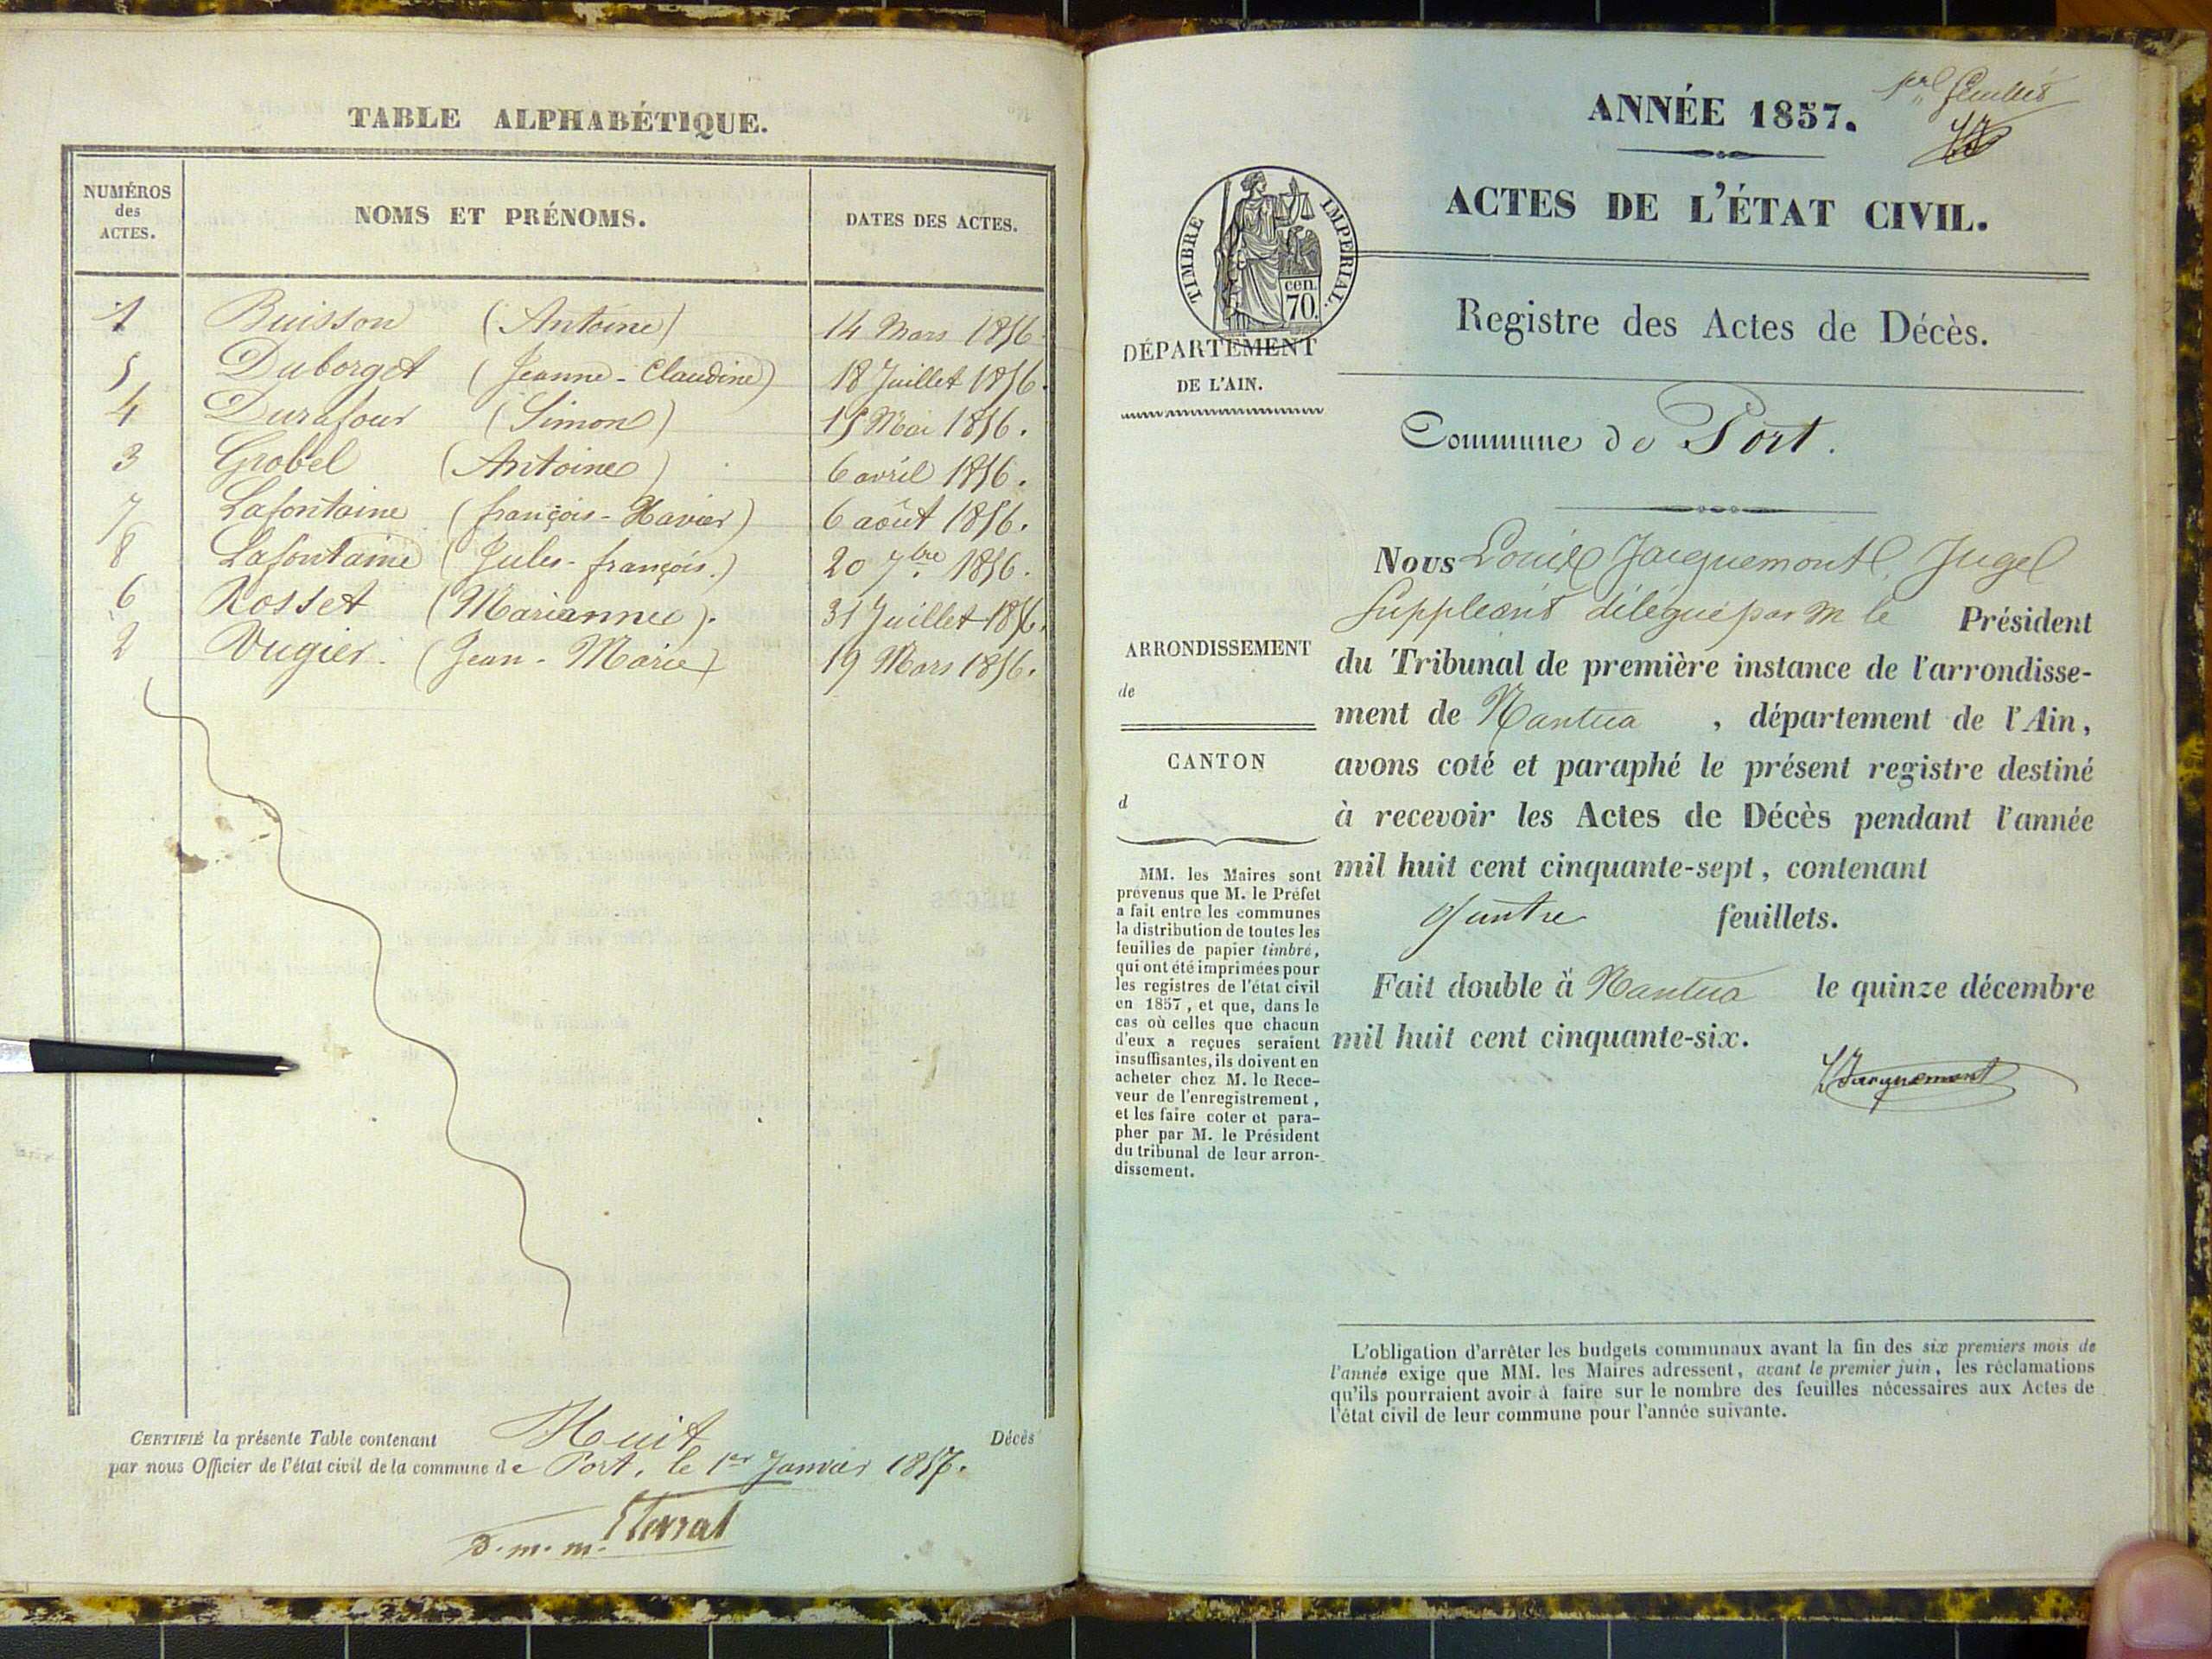 TABLE ALPHABÉTIQUE.
NUMÉROS
des
ACTES.
NOMS ET PRÉNOMS.
DATES DES ACTES.
1 Buisson (Antoine) 14 Mars 1856.
5 Duborget (Jeanne-Claudine) 18 Juillet 1856.
4 Durafour (Simon) 15 Mai 1856.
3 Grobel (Antoine) 6 avril 1856.
7 Lafontaine (françois-Xavier) 6 août 1856.
8 Lafontaine (Jules-françois.) 20 7bre 1856.
6 Rosset (Marianne). 31 Juillet 1856.
2 Vugier. (Jean-Marie) 19 Mars 1856.
CERTIFIÉ la présente Table contenant Huit Décès
par nous Officier de l'état civil de la commune de Port, le 1er Janvier 1857.
1er feuillet
ANNÉE 1857.
ACTES DE L'ÉTAT CIVIL.
TIMBRE IMPÉRIAL.
cen.
70.
DÉPARTEMENT
DE L'AIN.
Registre des Actes de Décès.
Commune de Port.
Nous Louis Jacquemont, Juge
Suppléant délégué par M le Président
du Tribunal de première instance de l'arrondisse-
ment de Nantua, département de l'Ain,
avons coté et paraphé le présent registre destiné
à recevoir les Actes de Décès pendant l'année
mil huit cent cinquante-sept, contenant
quatre feuillets.
Fait double à Nantua le quinze décembre
mil huit cent cinquante-six.
Jacquemont
ARRONDISSEMENT
de
CANTON
d
MM. les Maires sont
prévenus que M. le Préfet
a fait entre les communes
la distribution de toutes les
feuilles de papier timbré,
qui ont été imprimées pour
les registres de l'état civil
en 1857, et que, dans le
cas où celles que chacun
d'eux a reçues seraient
insuffisantes, ils doivent en
acheter chez M. le Rece-
veur de l'enregistrement,
et les faire coter et para-
pher par M. le Président
du tribunal de leur arron-
dissement.
L'obligation d'arrêter les budgets communaux avant la fin des six premiers mois de
l'année exige que MM. les Maires adressent, avant le premier juin, les réclamations
qu'ils pourraient avoir à faire sur le nombre des feuilles nécessaires aux Actes de
l'état civil de leur commune pour l'année suivante.